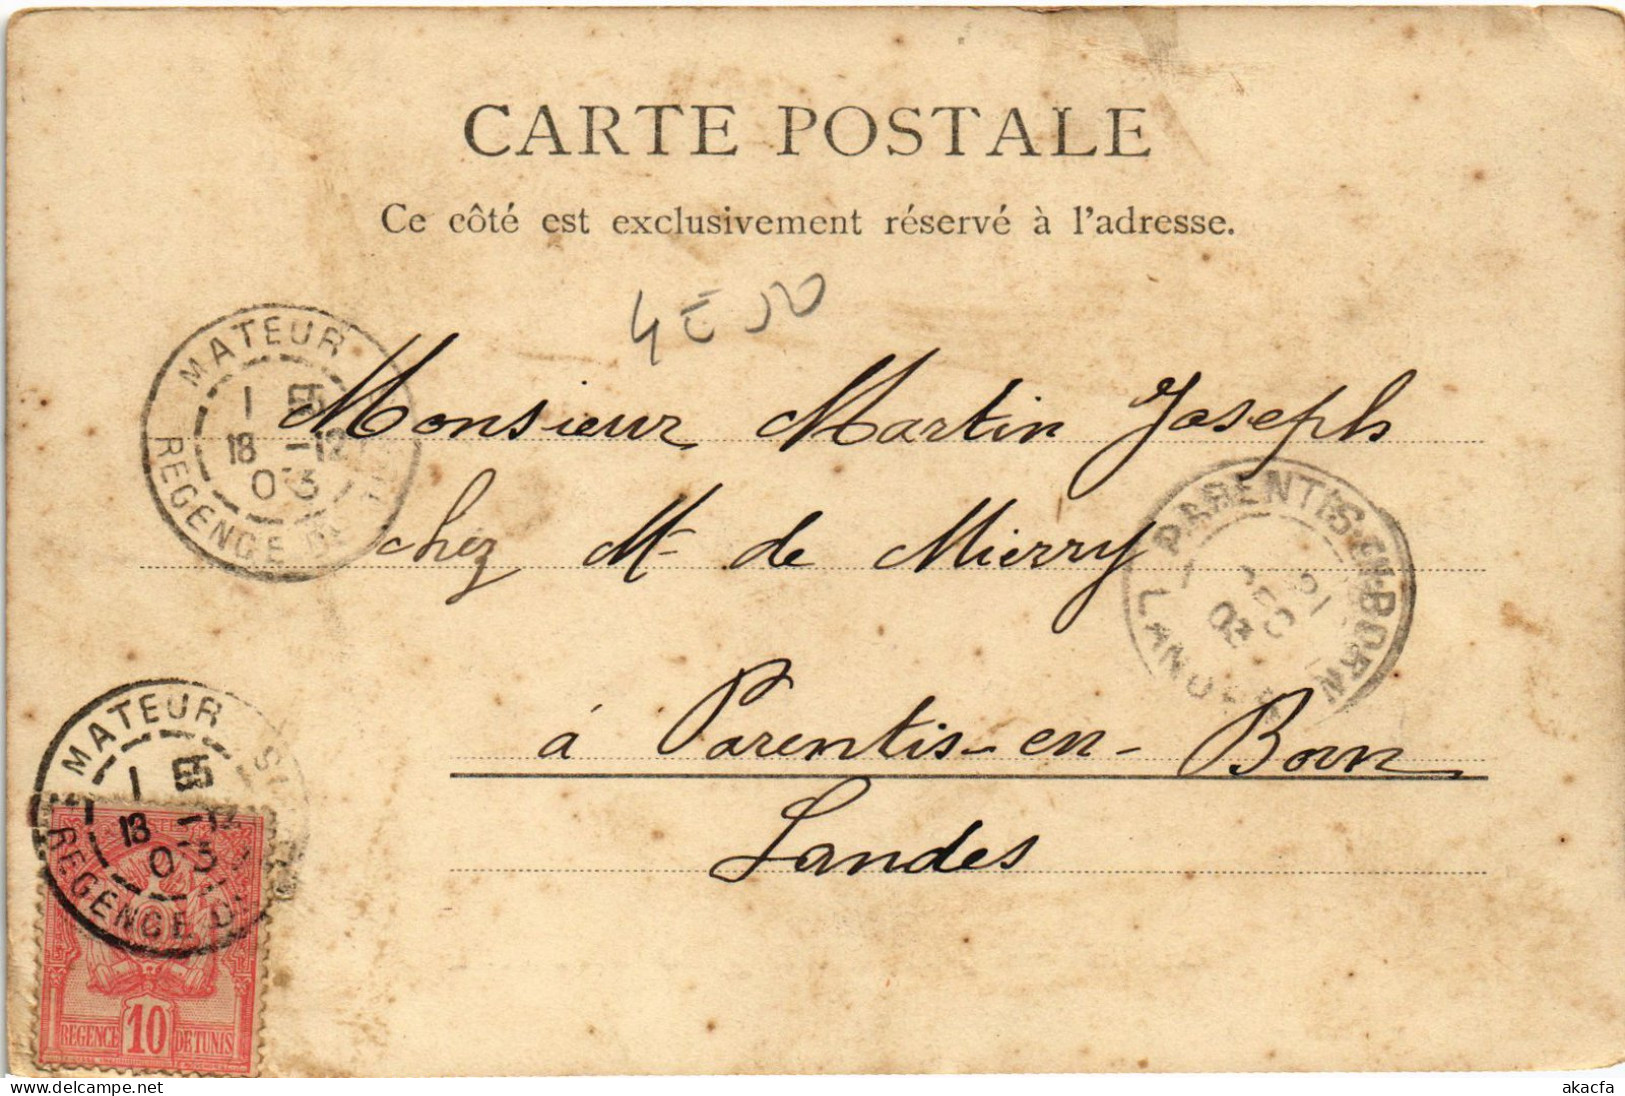 CARTE POSTALE
Ce côté est exclusivement réservé à l'adresse.
4 € 50
MATEUR
1 E
18 -12
03
REGENCE DE
Monsieur Martin Joseph
chez Mr de Mierry
PARENTIS-EN-BORN
LANDES
03
à Parentis-en-Born
Landes
MATEUR
1 E
18 -12
03
REGENCE DE
10
REGENCE DE TUNIS
akacfa